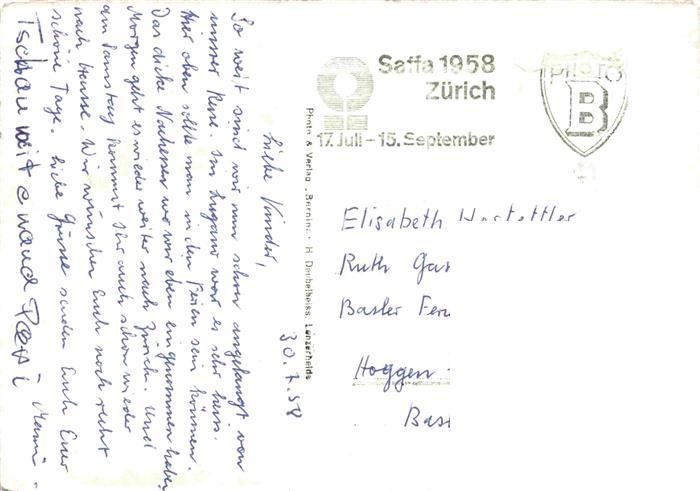 30.7.58
Liebe Kinder,
So weit sind wir nun schon angelangt von
unserer Reise. In Lugano war es sehr heiss.
Hier oben sollte man in den Ferien sein können.
Das dicke Nachessen wo wir eben eingenommen haben
Morgen geht es wieder weiter nach Zürich. Und
am Samstag kommt Ihr auch schon wieder
nach Hause. Wir wünschen Euch noch recht
schöne Tage. Liebe Grüsse senden Euch Euer
Mami
Tschau Papi
Photo & Verlag „Bernina" H. Lenzerheide
Saffa 1958
Zürich
17. Juli - 15. September
B
Elisabeth
Ruth Gas
Basler Fer
Hoggen
Bas